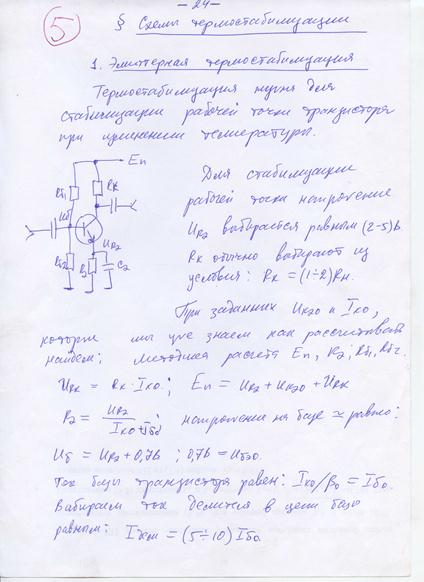 — 24 —
5
§ Схемы термостабилизации
1. Эмиттерная термостабилизация
Термостабилизация нужна для
стабилизации рабочей точки транзистора
при изменении температуры.
Eп
Rб1
Rк
Uб
URэ
Rб2
Rэ
Cэ
Для стабилизации
рабочей точки напряжение
URэ выбирается равным (2-5)В.
Rк обычно выбирают из
условия: Rк = (1÷2)Rн.
При заданных Uкэо и Iко,
которые мы уже знаем как рассчитывать
найдем; методика расчета Eп, Rэ; Rб1, Rб2.
URк = Rк · Iко; Eп = URэ + Uкэо + URк
Rэ = URэ / Iко+Iбо; напряжение на базе ≃ равно:
Uб = URэ + 0,7В ; 0,7В = Uбэо.
Ток базы транзистора равен: Iко/β0 = Iбо.
Выбираем ток делителя в цепи базы
равным: Iдел = (5÷10) Iбо.